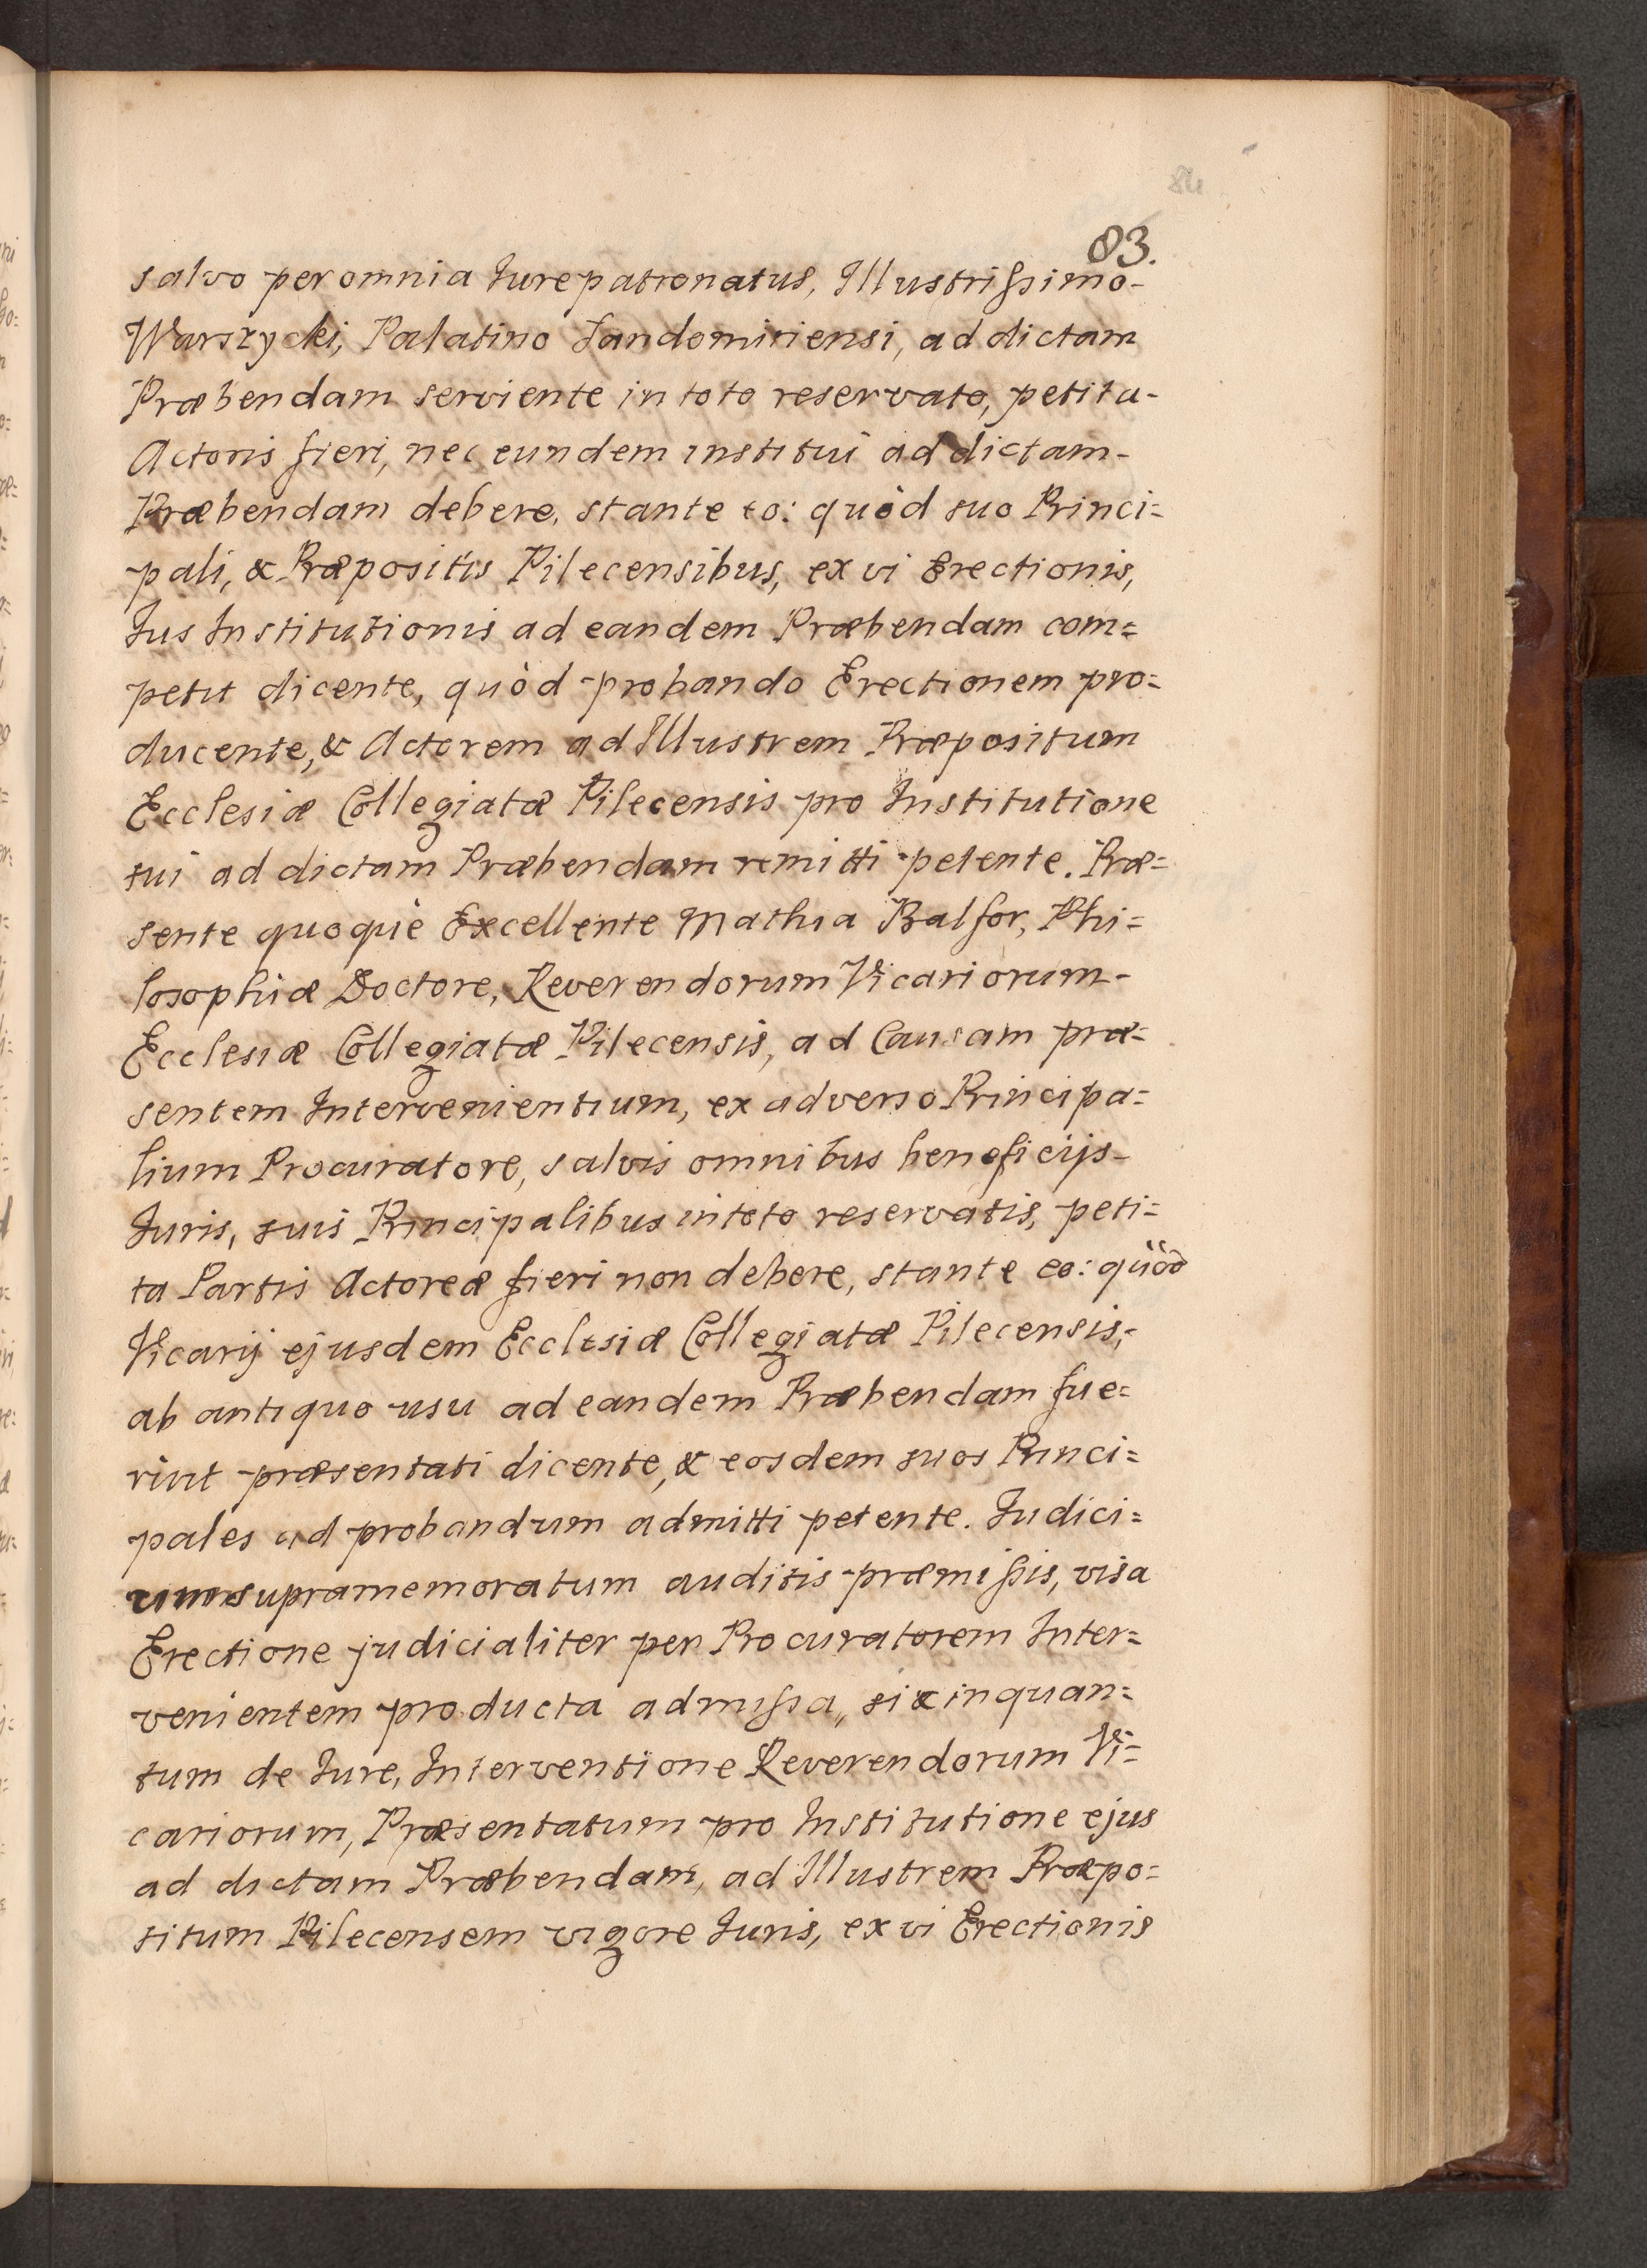 84
83.
salvo per omnia Jurepatronatus, Illustrissimo-
Warszycki, Palatino Sandomiriensi, ad dictam
Præbendam serviente in toto reservato, petita-
Actoris fieri, nec eundem institui ad dictam-
Præbendam debere, stante eo: quòd suo Princi=
pali, & Præpositis Pilecensibus, ex vi Erectionis,
Jus Institutionis ad eandem Præbendam com=
petit dicente, quòd probando Erectionem pro=
ducente, & Actorem ad Illustrem Præpositum
Ecclesiæ Collegiatæ Pilecensis pro Institutione
sui ad dictam Præbendam remitti petente. Præ=
sente quoque Excellente Mathia Balfor, Phi=
losophiæ Doctore, Reverendorum Vicariorum-
Ecclesiæ Collegiatæ Pilecensis, ad Causam præ=
sentem Intervenientium, ex adverso Principa=
lium Procuratore, salvis omnibus beneficijs-
Juris, suis Principalibus in toto reservatis, peti=
ta Partis Actoreæ fieri non debere, stante eo: quòd
Vicarij ejusdem Ecclesiæ Collegiatæ Pilecensis,
ab antiquo usu ad eandem Præbendam fue=
rint præsentati dicente, & eosdem suos Princi=
pales ad probandum admitti petente. Judici=
um supramemoratum auditis præmissis, visa
Erectione judicialiter per Procuratorem Inter=
venientem producta admissa, si & in quan=
tum de Jure, Interventione Reverendorum Vi=
cariorum, Præsentatum pro Institutione ejus
ad dictam Præbendam, ad Illustrem Præpo=
situm Pilecensem vigore Juris, ex vi Erectionis